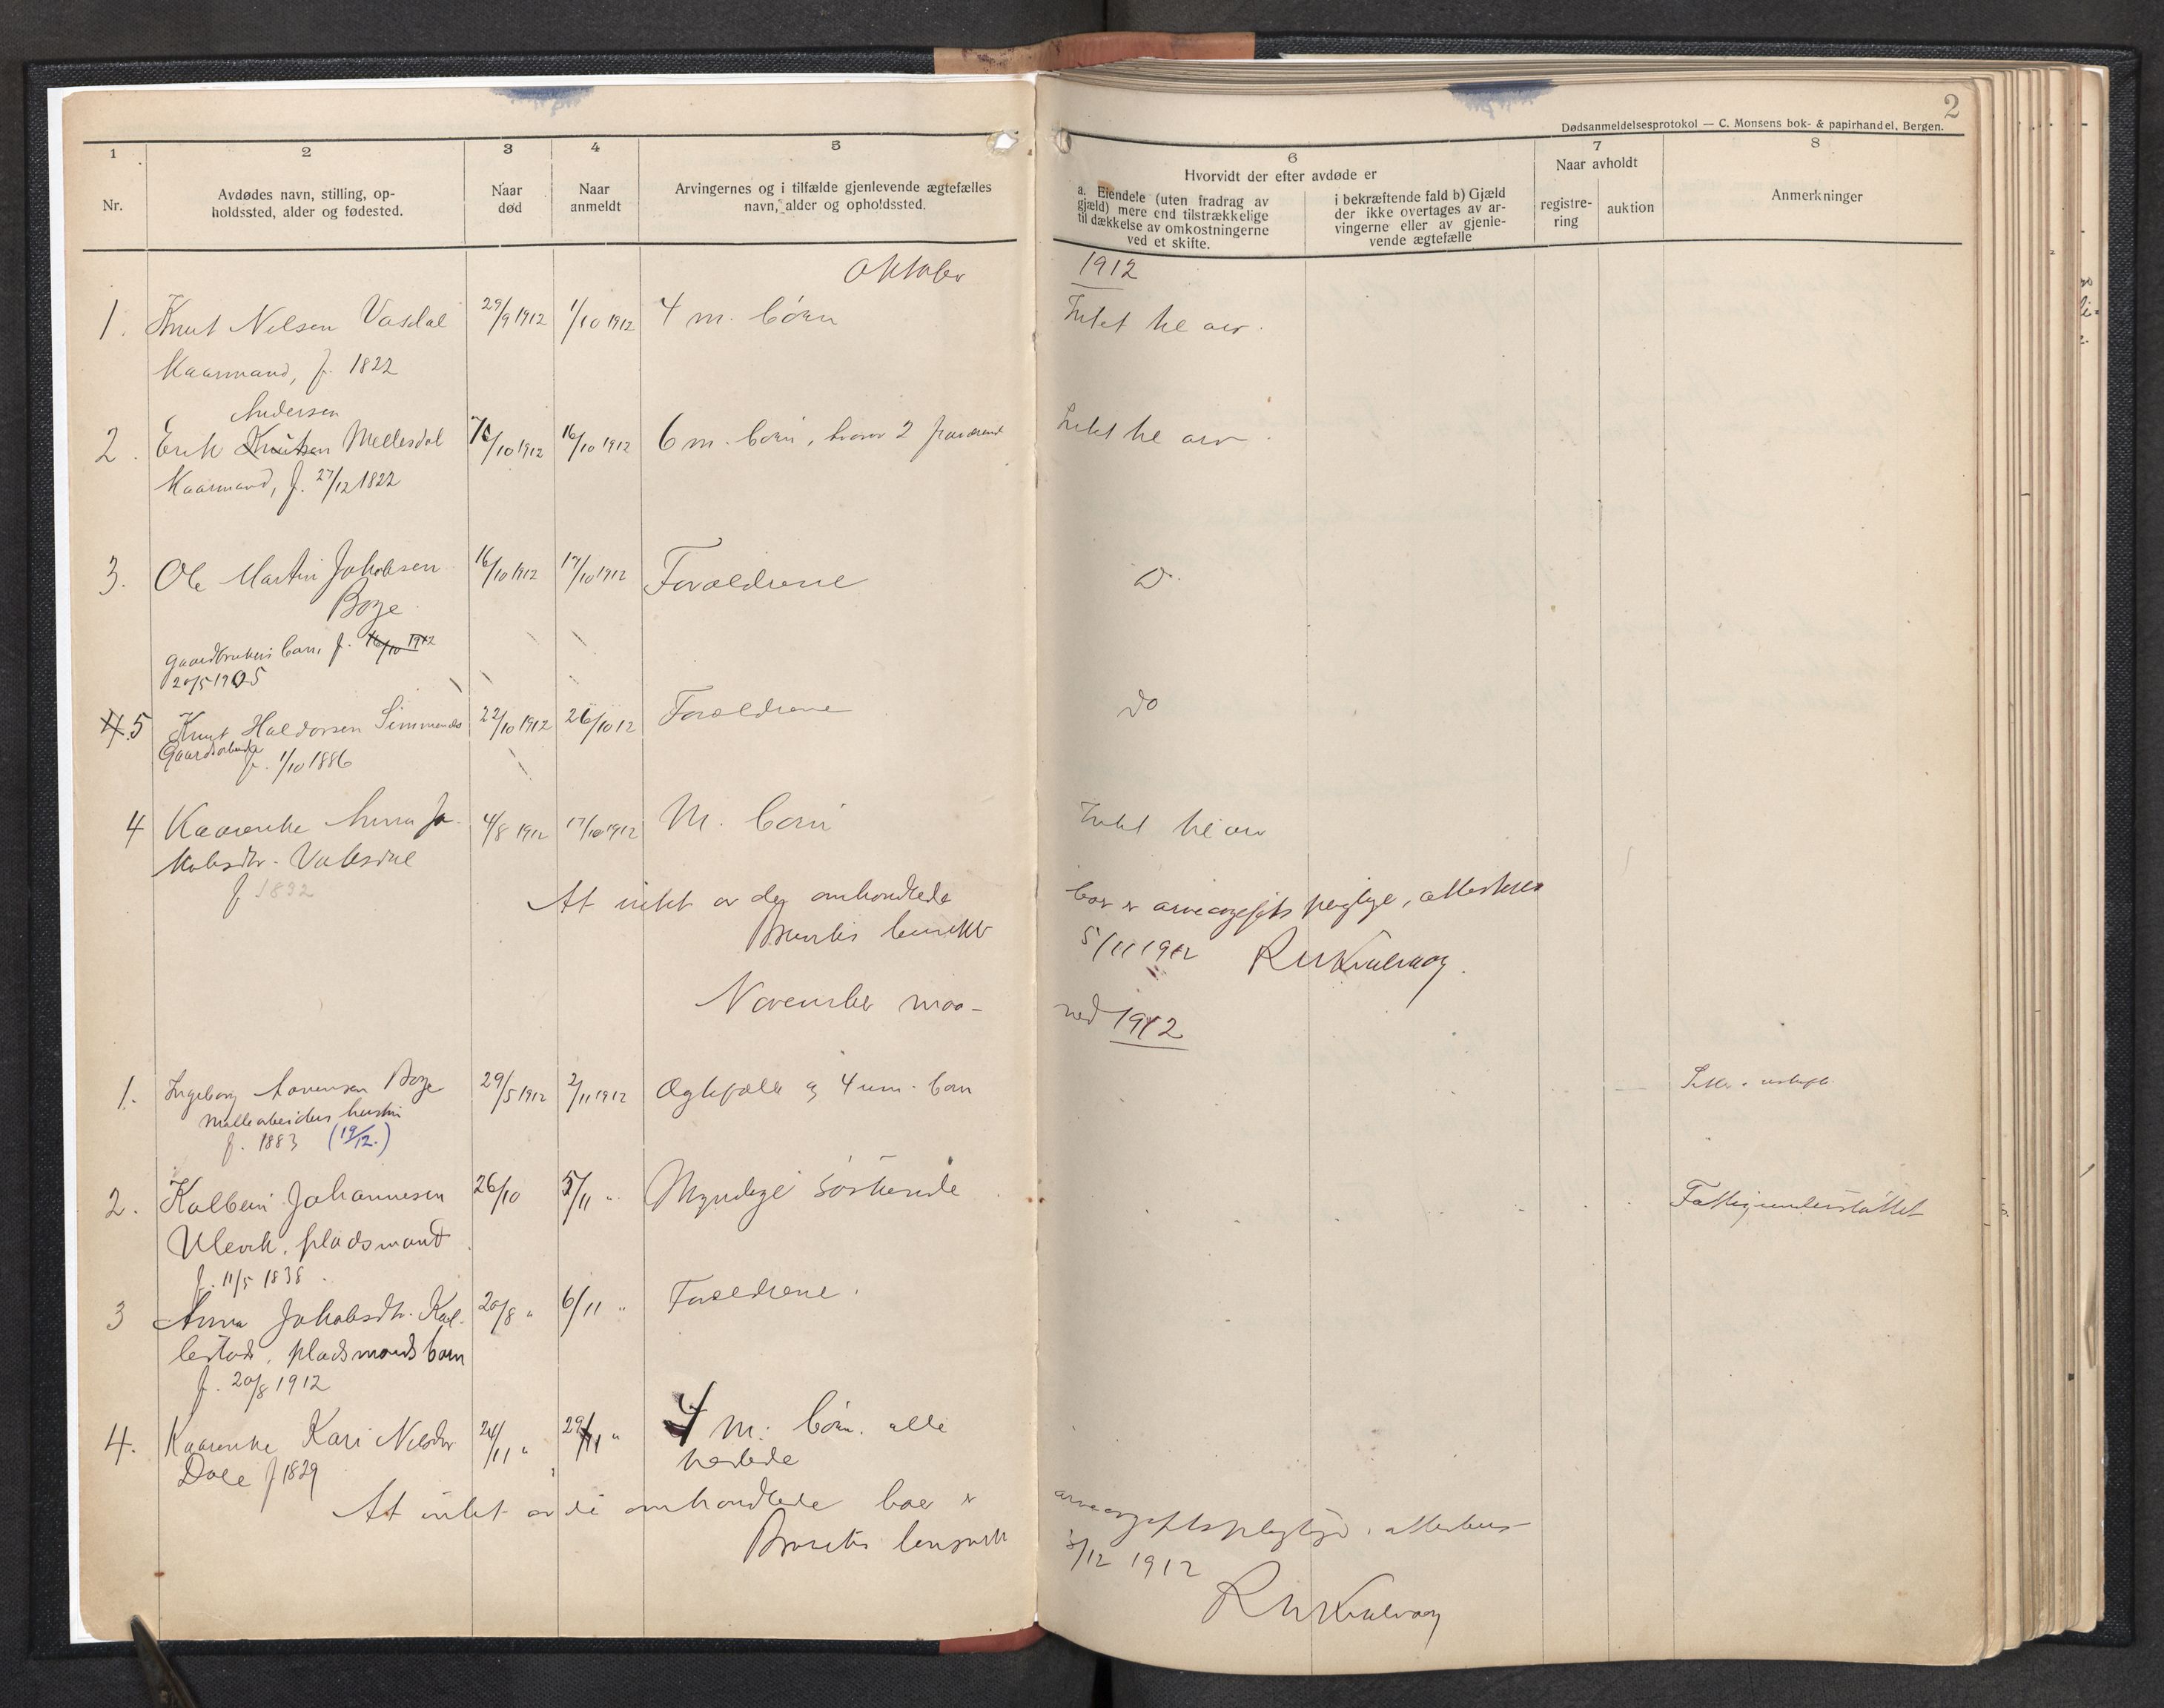 2
Dødsanmeldelsesprotokol — C. Monsens bok- & papirhandel, Bergen.
1
Nr.
2
Avdødes navn, stilling, op-
holdssted, alder og fødested.
3
Naar
død
4
Naar
anmeldt
5
Arvingernes og i tilfælde gjenlevende ægtefælles
navn, alder og opholdssted.
6
Hvorvidt der efter avdøde er
a. Eiendele (uten fradrag av
gjæld) mere end tilstrækkelige
til dækkelse av omkostningerne
ved et skifte.
i bekræftende fald b) Gjæld
der ikke overtages av ar-
vingerne eller av gjenle-
vende ægtefælle
7
Naar avholdt
registre-
ring
auktion
8
Anmerkninger
Oktober 1912
1. Knut Nilsen Vasdal 29/9 1912 1/10 1912 4 m. børn Intet til arv.
Kaarmand, f. 1822
Andersen
2. Erik Knutsen Mellesdal /10 1912 16/10 1912 6 m. børn, hvorav 2 fraværend Intet til arv.
Kaarmand, f. 27/12 1822
3. Ole Martin Jakobsen 16/10 1912 17/10 1912 Forældrene Do.
Boge
gaardbrukers barn, f. 16/10 1912
20/5 1905
4. 5 Knut Haldorsen Simmenes 22/10 1912 26/10 12 Forældrene Do
Gaardsarbeider
f. 1/10 1886
4 Kaarenke Anna Ja- 4/8 1912 17/10 1912 M. børn Intet til arv
kobsdtr. Vaksdal
f 1832
At intet av de omhandlede boer er arveavgiftspligtige, attesteres
Bruvik 5/11 1912
November maa-
ned 1912
1. Ingeborg Boge 29/5 1912 2/11 1912 Ægtefælle og 4 um. børn
møllearbeiders hustru
f. 1883 (19/12.)
2. Kolbein Johannesen 26/10 5/11 " Myndige søskende Fattigunderstøttet
Ulevik, pladsmand
f. 11/5 1838.
3 Anna Jakobsdtr. Kal- 20/8 " 6/11 " Forældrene.
lestad, pladsmands barn
f. 20/8 1912
4. Kaarenke Kari Nilsdtr 24/11 " 29/11 " 4 m. børn. alle
Dale f 1829 herlede
At intet av de omhandlede boer er arveavgiftspligtige, attesteres
3/12 1912